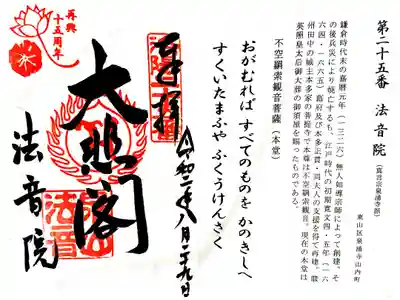 第二十五番 法音院(真言宗泉涌寺派)
東山区泉涌寺山内町
鎌倉時代末の嘉暦元年(一三二六)無人如導宗師によって創建、そ
の後兵災により焼亡するも、江戸時代の初期寛文四・五年(一六
六四・一六六五)幕府及び本多正貫・同夫人の支援を得て再建。駿
州田中の城主本多家の菩提寺で本尊は不空羂索観音。現在の本堂は
英照皇太后御大葬の御須屋を賜ったものである。
不空羂索観音菩薩(本堂)
おがむれば すべてのものを かのきしへ
すくいたまふや ふくうけんさく
奉拝
令和二年八月二十九日
大悲閣
法音院
再興
十五周年